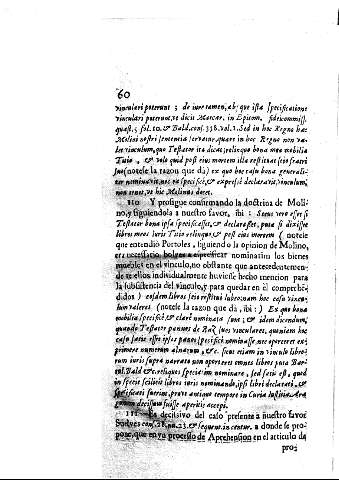 60
vinculari poterunt; de iure tamen, absque ista specificatione
vinculari poterunt, ut dicit Marcar. in Epitom. fideicommiss.
quæst. 5. fol. 10. & Bald. conf. 338. vol. 1. Sed in hoc Regno hæc
Molini nostri sententia servatur, quare in hoc Regno non va-
let vinculum, quo Testator ita dicat; relinquo bona mea mobilia
Titio, & volo quod post eius mortem illa restituat seu fratri
suo (notese la razon que dà) ex quo hæc casu bona generali-
ter nominavit, nec ea specificè, & expressè declaravit, vinculum,
non tenet, ut hic Molinus docet.
110 Y prosigue confirmando la doctrina de Moli
no, y siguiendola à nuestro favor, ibi: Secus vero esset si
Testator bona ipsa specificasset, & declarasset, puta si dixisset
libros meos iuris Titio relinquo, & post eius mortem (notese
que entendio Portoles, siguiendo la opinion de Molino,
era necessario bolver à especificar nominatim los bienes
muebles en el vinculo, no obstante que antecedentemen-
te de ellos individualmente huviesse hecho mencion para
la subsistencia del vinculo, y para quedar en èl comprehē-
didos) eosdem libros seio restitui iubeo: nam hoc casu vincu-
lum valeret. (notese la razon que dà, ibi:) Ex quo bona
mobilia specificè, & clarè nominata sunt; & idem dicendum,
quando Testator pannos de Raz suos vincularet, quoniam hoc
casu satis esset ipsos pannos specificè nominasse, nec oporteret ex-
primere numerum alnarum, &c. sicut etiam in vinculo libro-
rum iuris supra narrato non oporteret omnes libros puta Bar-
tol. Bald. & c. reliquos specialim nominare, sed satis est, quod
in specie scilicet libros iuris nominando, ipsi libri declarati, &
specificati fuerint, prout antiquo tempore in Curia Iustitiæ Ara
gonum decisum fuisse apertis accepi.
111 Es decisivo del caso presente à nuestro favor
Suelves conf. 28. nu. 23. & sequent. in centur. a donde se pro-
pone, que en un processo de Aprehension en el articulo de
pro-